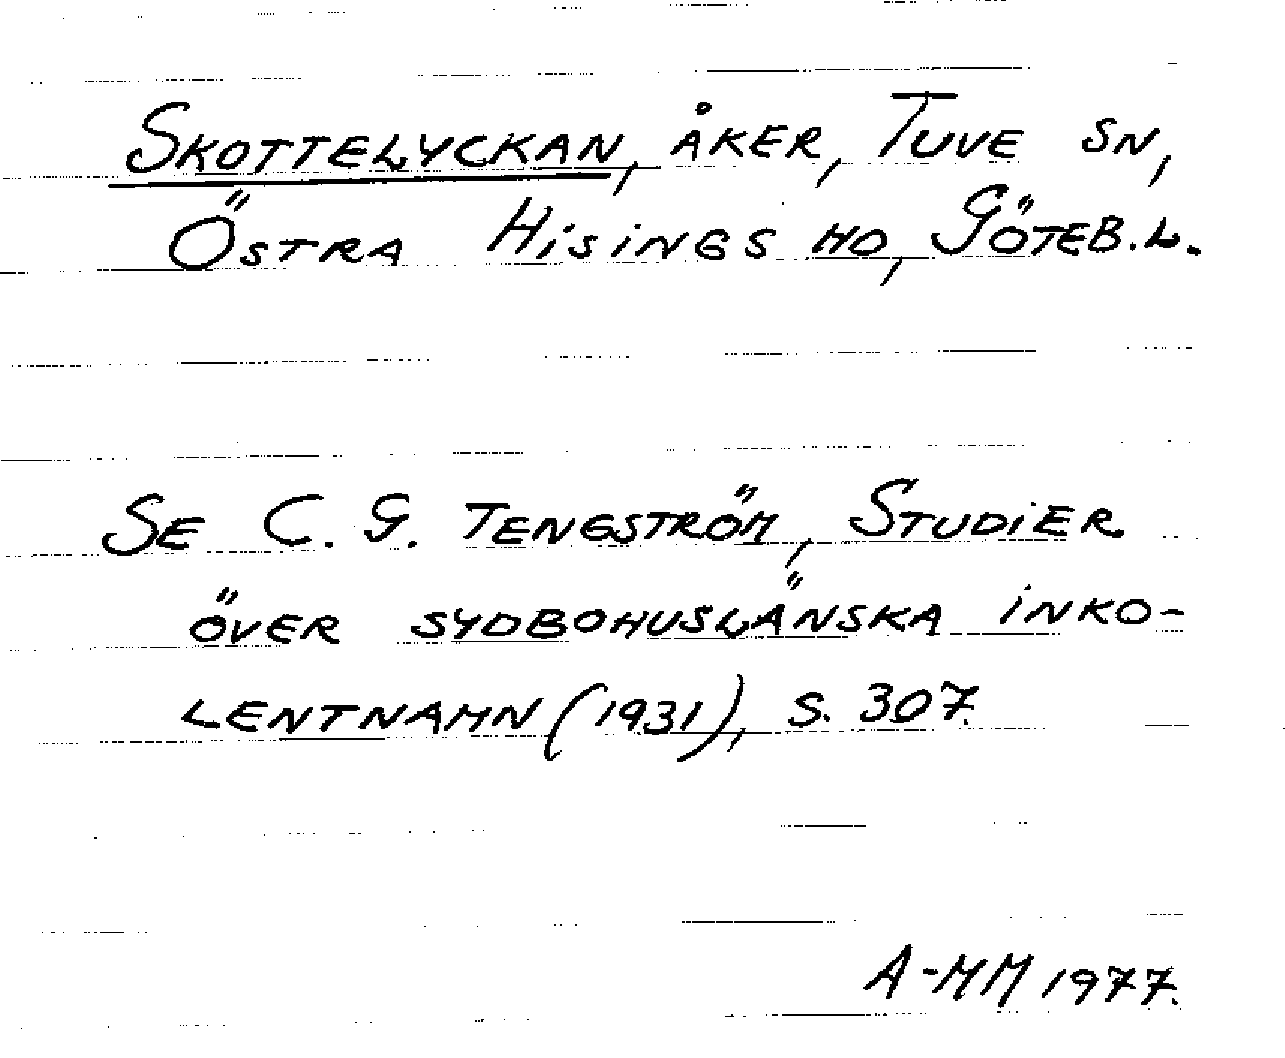 SKOTTELYCKAN, ÅKER, TUVE SN,
ÖSTRA HISINGS HD, GÖTEB.L.
SE C. G. TENGSTRÖM, STUDIER
ÖVER SYDBOHUSLÄNSKA INKO-
LENTNAMN (1931), S. 307.
A-MM 1977.